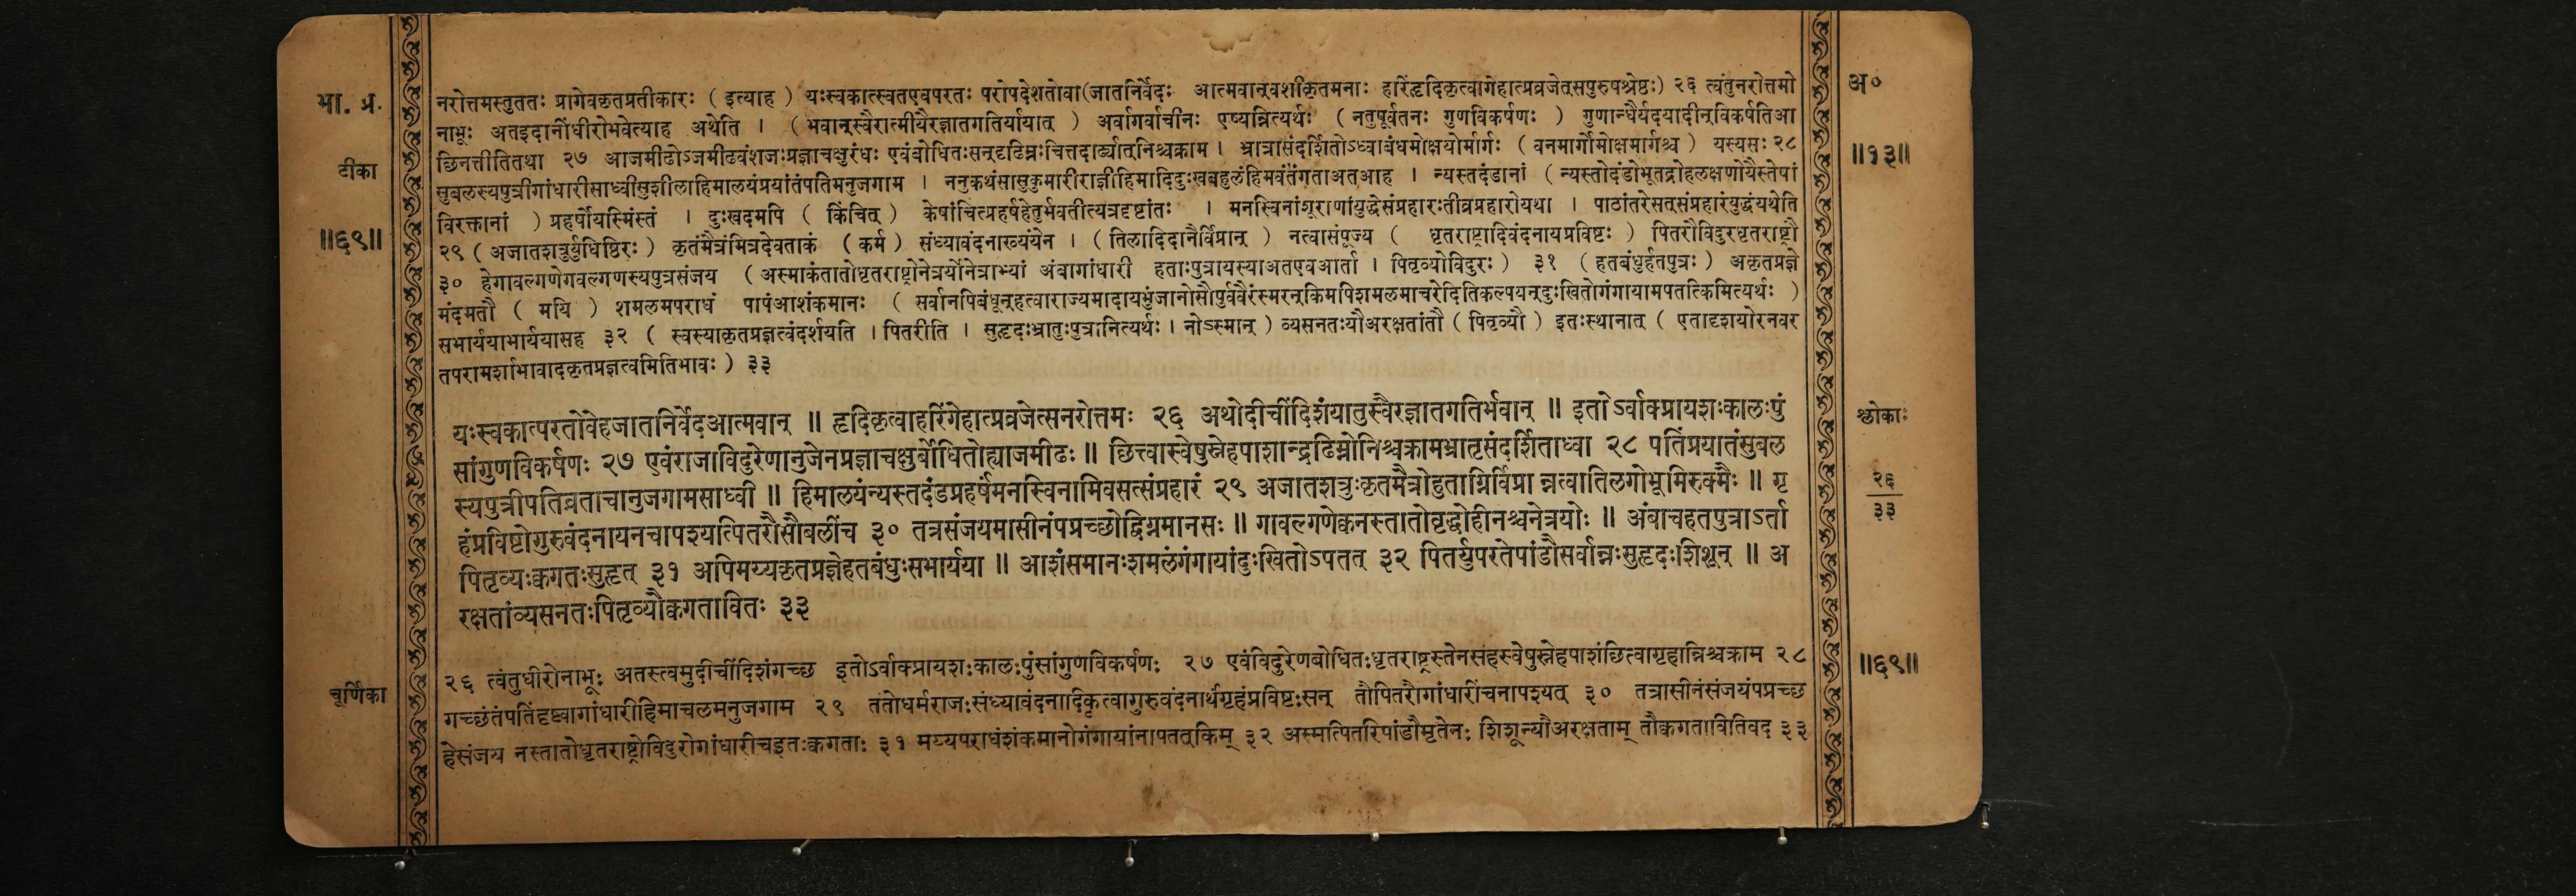 भा. प्र.
टीका
॥६९॥
चूर्णिका
नरोत्तमस्तुततः प्रागेवकृतप्रतीकारः ( इत्याह ) यःस्वकात्स्वतएवपरतः परोपदेशतोवा(जातनिर्वेदः आत्मवान्वशीकृतमनाः हरिंहृदिकृत्वागेहात्प्रव्रजेत्सपुरुषश्रेष्ठः) २६ त्वंतुनरोत्तमो
नाभूः अतइदानींधीरोभवेत्याह अथेति । ( भवान्स्वैरात्मीयैरज्ञातगतिर्यायात् ) अर्वागर्वाचीनः एष्यन्नित्यर्थः ( नतुपूर्वतनः गुणविकर्षणः ) गुणान्धैर्यदयादीन्विकर्षतिआ
छिनत्तीतितथा २७ आजमीढोऽजमीढवंशजःप्रज्ञाचक्षुरंधः एवंबोधितःसन्द्दढिम्नःचित्तदार्ढ्यात्निश्चक्राम । भ्रात्रासंदर्शितोऽध्वाबंधमोक्षयोर्मार्गः ( वनमार्गोमोक्षमार्गश्च ) यस्यसः २८
सुबलस्यपुत्रीगांधारीसाध्वीसुशीलाहिमालयंप्रयांतंपतिमनुजगाम । ननुकथंसासुकुमारीराज्ञीहिमादिदुःखबहुलंहिमवंतंगताअतआह । न्यस्तदंडानां ( न्यस्तोदंडोभूतद्रोहलक्षणोयैस्तेषां
विरक्तानां ) प्रहर्षोयस्मिंस्तं । दुःखदमपि ( किंचित् ) केषांचित्प्रहर्षहेतुर्भवतीत्यत्रदृष्टांतः । मनस्विनांशूराणांयुद्धेसंप्रहारःतीव्रप्रहारोयथा । पाठांतरेसत्संप्रहारंयुद्धंयथेति
२९ ( अजातशत्रुर्युधिष्ठिरः ) कृतंमैत्रंमित्रदेवताकं ( कर्म ) संध्यावंदनाख्यंयेन । ( तिलादिदानैर्विप्रान् ) नत्वासंपूज्य ( धृतराष्ट्रादिवंदनायप्रविष्टः ) पितरौविदुरधृतराष्ट्रौ
३० हेगावल्गणेगवल्गणस्यपुत्रसंजय ( अस्माकंतातोधृतराष्ट्रोनेत्रयोर्नेत्राभ्यां अंबागांधारी हताःपुत्रायस्याअतएवआर्ता । पितृव्योविदुरः ) ३१ ( हतबंधुर्हतपुत्रः ) अकृतप्रज्ञे
मंदमतौ ( मयि ) शमलमपराधं पापंआशंकमानः ( सर्वानपिबंधून्हत्वाराज्यमादायभुंजानोसौपुर्ववैरंस्मरन्किमपिशमलमाचरेदितिकल्पयन्दुःखितोगंगायामपतत्किमित्यर्थः )
सभार्ययाभार्ययासह ३२ ( स्वस्याकृतप्रज्ञत्वंदर्शयति । पितरीति । सुहृदःभ्रातुःपुत्रानित्यर्थः । नोऽस्मान् ) व्यसनतःयौअरक्षतांतौ ( पितृव्यौ ) इतःस्थानात् ( एतादृशयोरनवर
तपरामर्शाभावादकृतप्रज्ञत्वमितिभावः ) ३३
यःस्वकात्परतोवेहजातनिर्वेदआत्मवान् ॥ हृदिकृत्वाहरिंगेहात्प्रव्रजेत्सनरोत्तमः २६ अथोदीचींदिशंयातुस्वैरज्ञातगतिर्भवान् ॥ इतोऽर्वाक्प्रायशःकालःपुं
सांगुणविकर्षणः २७ एवंराजाविदुरेणानुजेनप्रज्ञाचक्षुर्बोधितोह्याजमीढः ॥ छित्त्वास्वेषुस्नेहपाशान्द्रढिम्नोनिश्चक्रामभ्रातृसंदर्शिताध्वा २८ पतिंप्रयातंसुबल
स्यपुत्रीपतिव्रताचानुजगामसाध्वी ॥ हिमालयंन्यस्तदंडप्रहर्षंमनस्विनामिवसत्संप्रहारं २९ अजातशत्रुःकृतमैत्रोहुताग्निर्विप्रा न्नत्वातिलगोभूमिरुक्मैः ॥ गृ
हंप्रविष्टोगुरुवंदनायनचापश्यत्पितरौसौबलींच ३० तत्रसंजयमासीनंपप्रच्छोद्विग्नमानसः ॥ गावल्गणेक्वनस्तातोवृद्धोहीनश्चनेत्रयोः ॥ अंबाचहतपुत्राऽर्ता
पितृव्यःक्वगतःसुहृत् ३१ अपिमय्यकृतप्रज्ञेहतबंधुःसभार्यया ॥ आशंसमानःशमलंगंगायांदुःखितोऽपतत् ३२ पितर्युपरतेपांडौसर्वान्नःसुहृदःशिशून् ॥ अ
रक्षतांव्यसनतःपितृव्यौक्वगतावितः ३३
२६ त्वंतुधीरोनाभूः अतस्त्वमुदीचींदिशंगच्छ इतोऽर्वाक्प्रायशःकालःपुंसांगुणविकर्षणः २७ एवंविदुरेणबोधितःधृतराष्ट्रस्तेनसंहस्वेषुस्नेहपाशंछित्वागृहान्निश्चक्राम २८
गच्छंतंपतिंदृष्ट्वागांधारीहिमाचलमनुजगाम २९ ततोधर्मराजःसंध्यावंदनादिकृत्वागुरुवंदनार्थंगृहंप्रविष्टःसन् तौपितरौगांधारींचनापश्यत् ३० तत्रासीनंसंजयंपप्रच्छ
हेसंजय नस्तातोधृतराष्ट्रोविदुरोगांधारीचइतःक्वगताः ३१ मय्यपराधंशंकमानोगंगायांनापतत्किम् ३२ अस्मत्पितरिपांडौमृतेनः शिशून्यौअरक्षताम् तौक्वगतावितिवद ३३
अ०
॥१३॥
श्लोकाः
२६
३३
॥६९॥